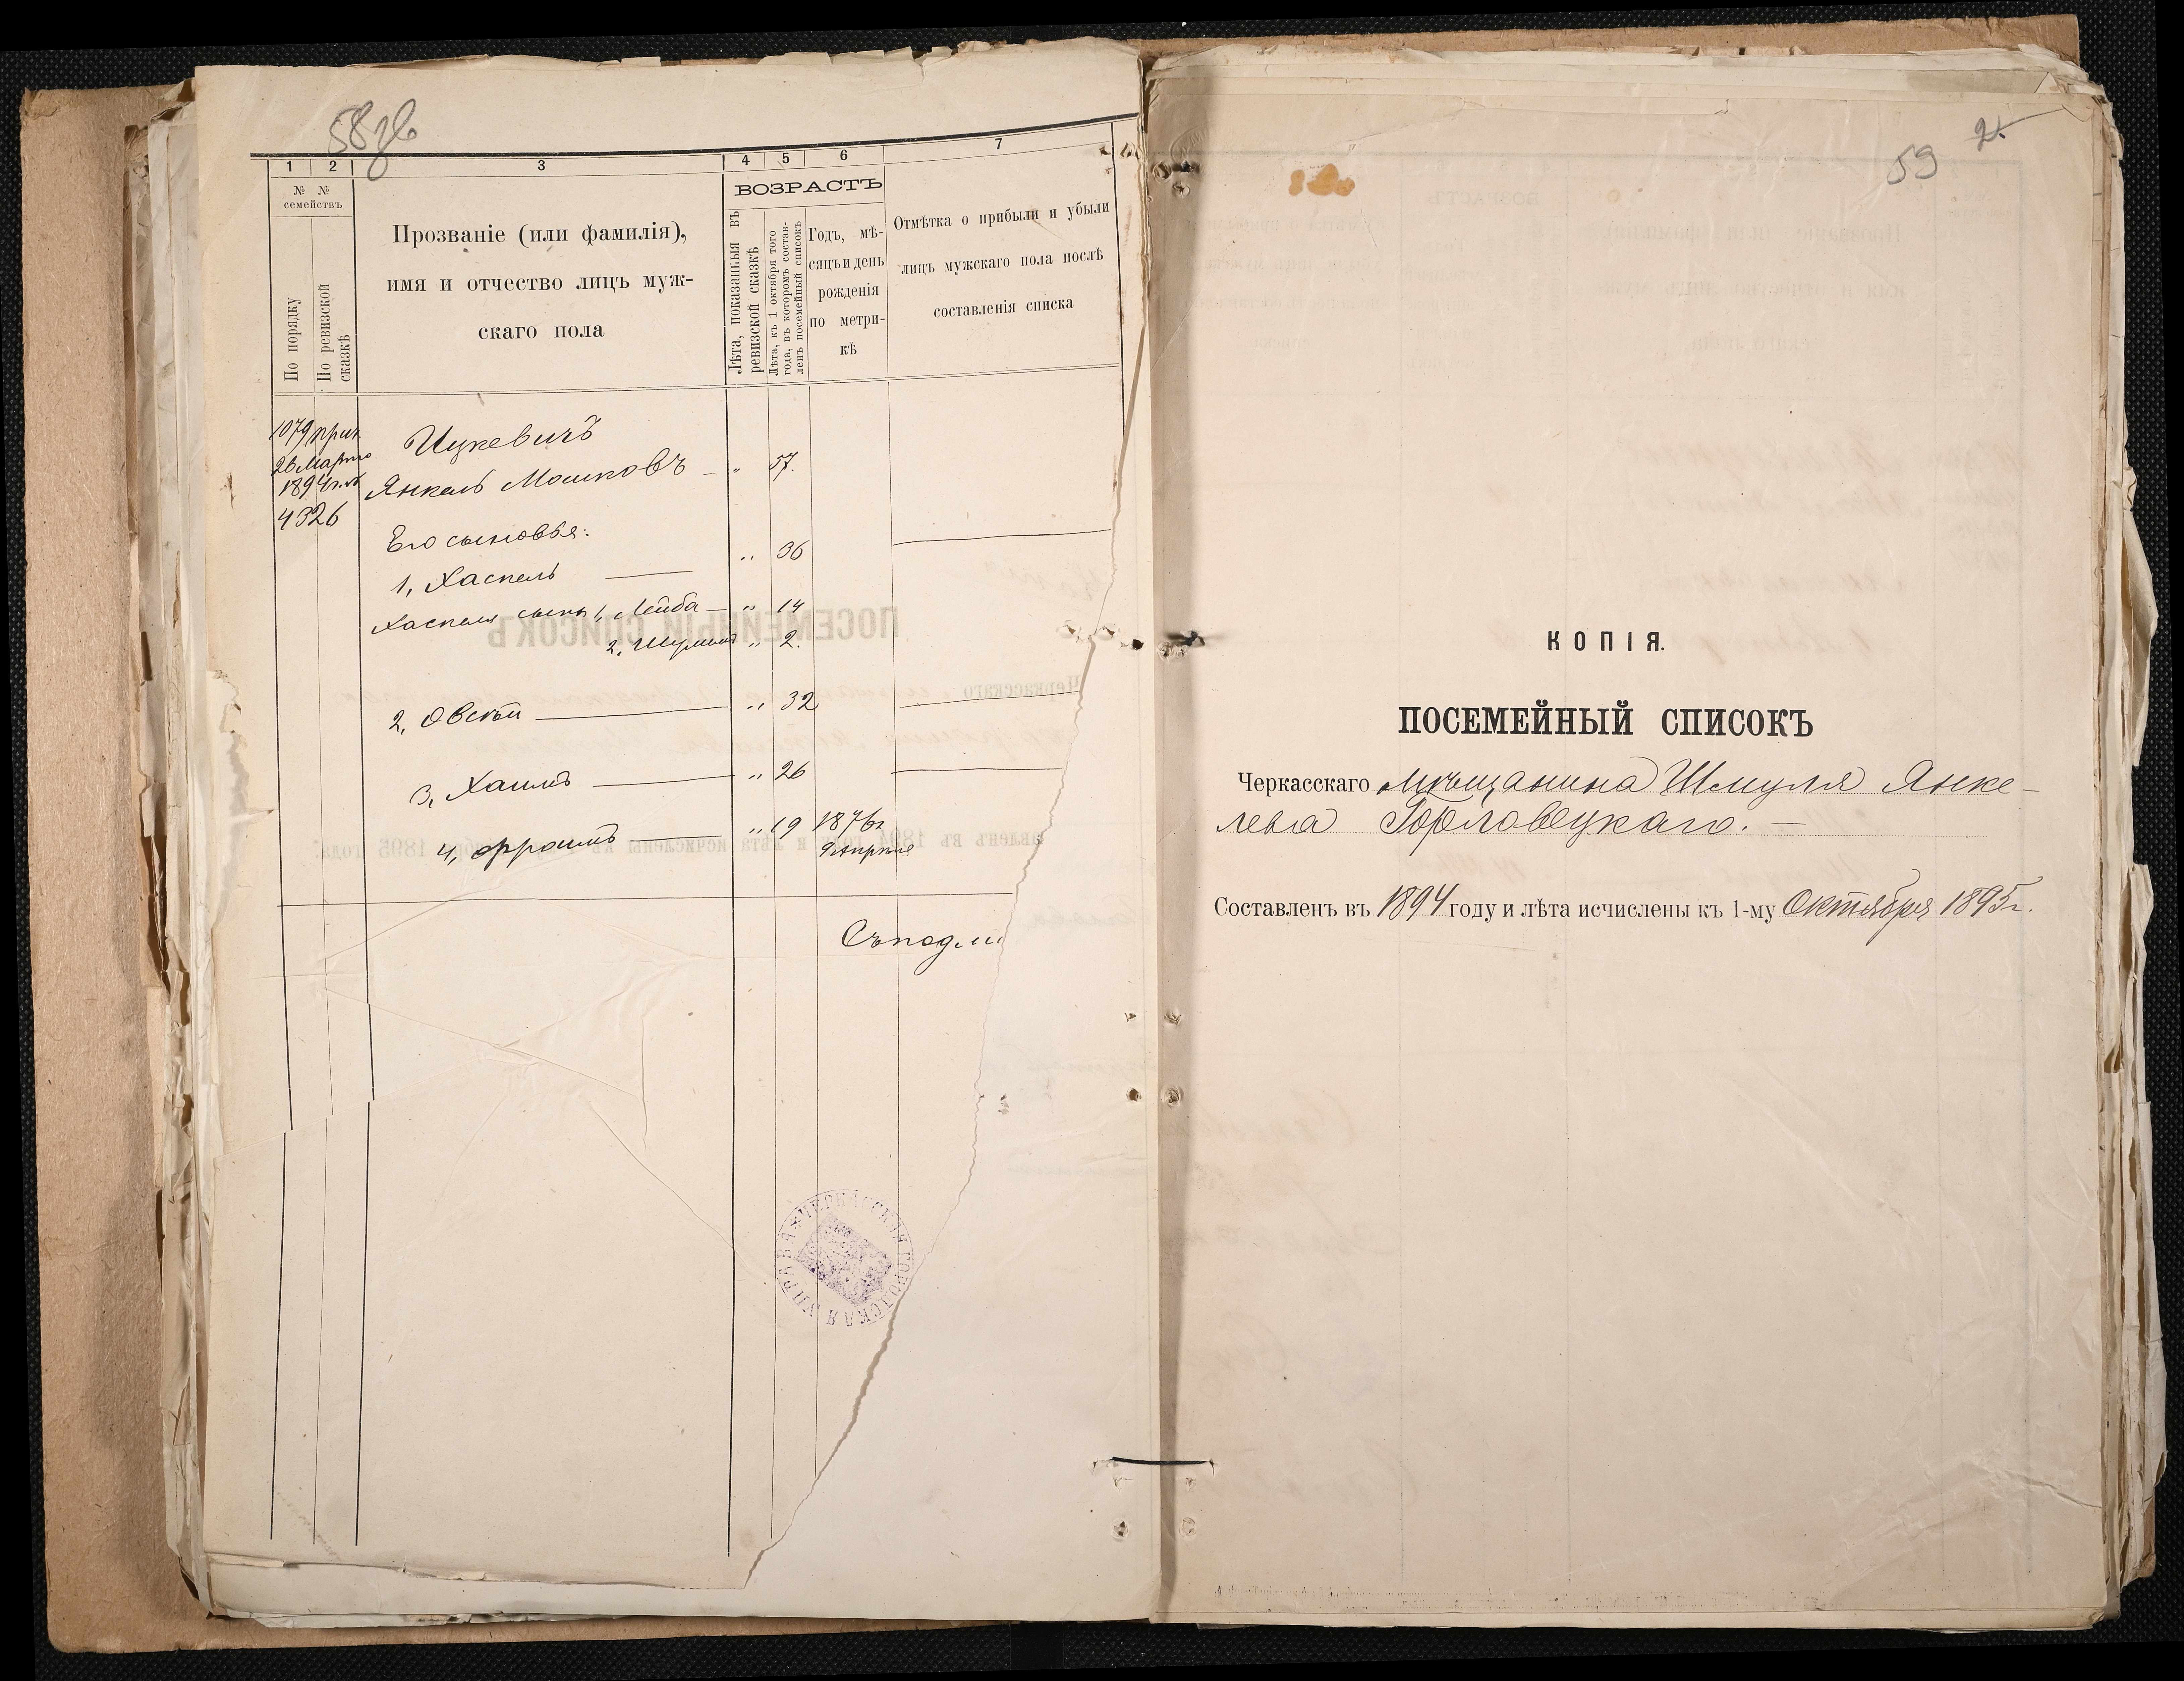 58 зв
1 2 3 4 5 6 7
№ №
семействъ
По порядку
По ревизской
сказкѣ
Прозваніе (или фамилія),
имя и отчество лицъ муж-
скаго пола
ВОЗРАСТЪ
Лѣта, показанныя въ
ревизской сказкѣ
Лѣта, къ 1 октября того
года, въ которомъ состав-
ленъ посемейный списокъ
Годъ, мѣ-
сяцъ и день
рожденія
по метри-
кѣ
Отмѣтка о прибыли и убыли
лицъ мужскаго пола послѣ
составленія списка
1079 прик
26 Марта
1894 г. №
4326
Ицкевичъ
Янкель Мошковъ — „ 57.
Его сыновья:
1, Хаскель — „ 36
Хаскеля сыны 1, Лейба — „ 14
2, Шулимъ „ 2.
2, Овсѣй — „ 32
3, Хаимъ — „ 26
4, Фроимъ — „ 19 1876 г
Апрѣля
Съ подли
ЧЕРКАССКАЯ ГОРОДСКАЯ УПРАВА
59
КОПІЯ.
ПОСЕМЕЙНЫЙ СПИСОКЪ
Черкасскаго мѣщанина Шмуля Янке-
лева Горловецкаго. —
Составленъ въ 1894 году и лѣта исчислены къ 1-му Октября 1895 г.